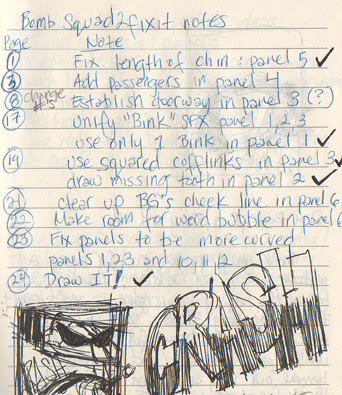 Bomb Squad 2 fixit notes
Page Note
1 Fix length of chin: panel 5 ✓
3 Add passengers in panel 4
8 change #5 Establish doorway in panel 3 (?)
17 Unify "Bink" SFX panel 1, 2, 3
use only 1 Bink in panel 1 ✓
19 use squared cofflinks in panel 3 ✓
draw missing tooth in panel 2 ✓
21 clear up BG's cheek line in panel 6
22 Make room for word bubble in panel 6
23 Fix panels to be more curved
panels 1, 2, 3 and 10, 11, 12
24 Draw IT! ✓
CRASH